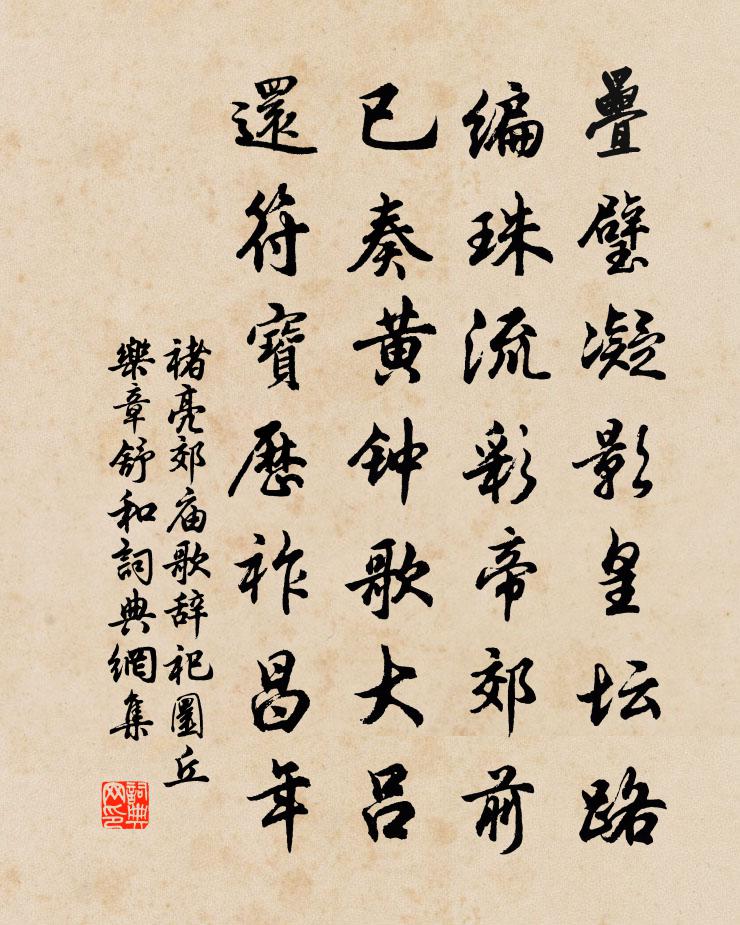 疊璧凝影皇坛路
编珠流彩帝郊前
已奏黄钟歌大吕
還符寶曆祚昌年
褚亮郊庙歌辞祀圜丘
樂章舒和詞典網集
詞典网印